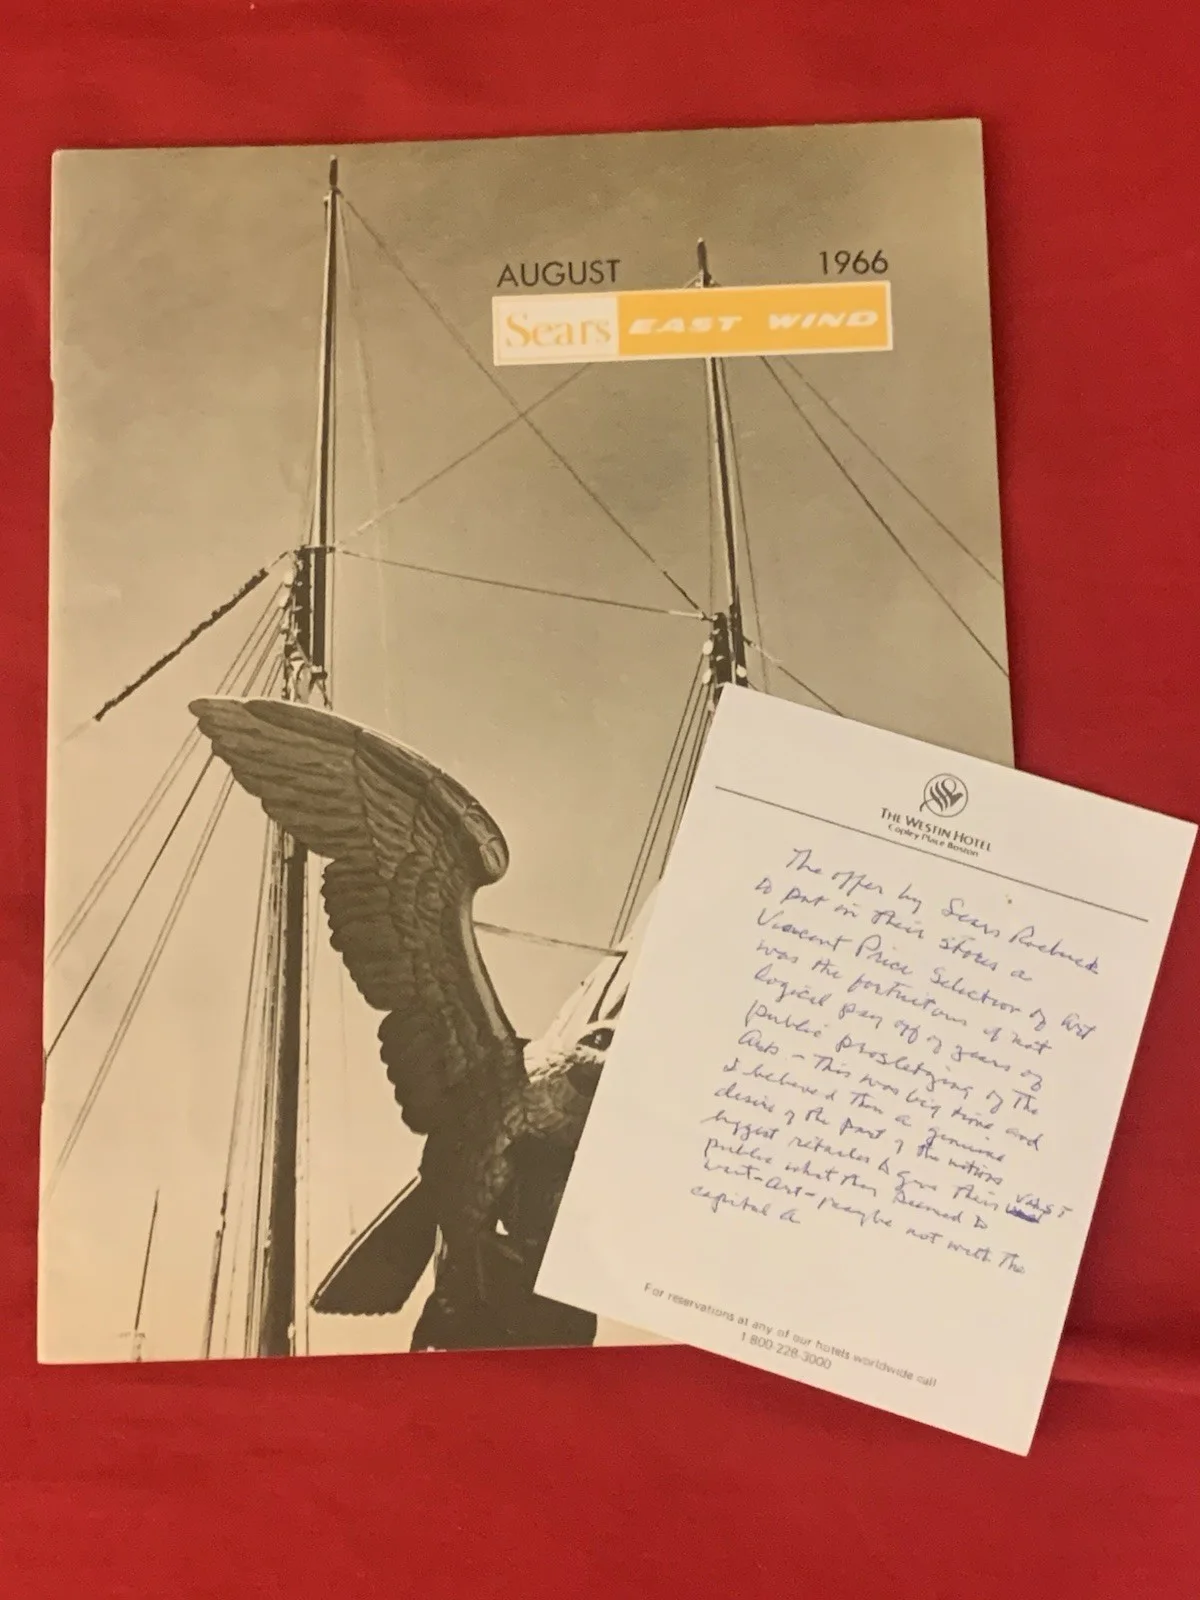 AUGUST 1966
Sears EAST WIND
THE WESTIN HOTEL
Copley Place Boston
The offer by Sears Roebuck
to put in their stores a
Vincent Price Selection of Art
was the fortuitous if not
logical pay off of years of
public proselytzing of the
Arts - This was big time and
I believed then a genuine
desire of the part of the nations
biggest retailer to give their VAST
public what they seemed to
want - Art - maybe not with the
capital A
For reservations at any of our hotels worldwide call
1-800-228-3000